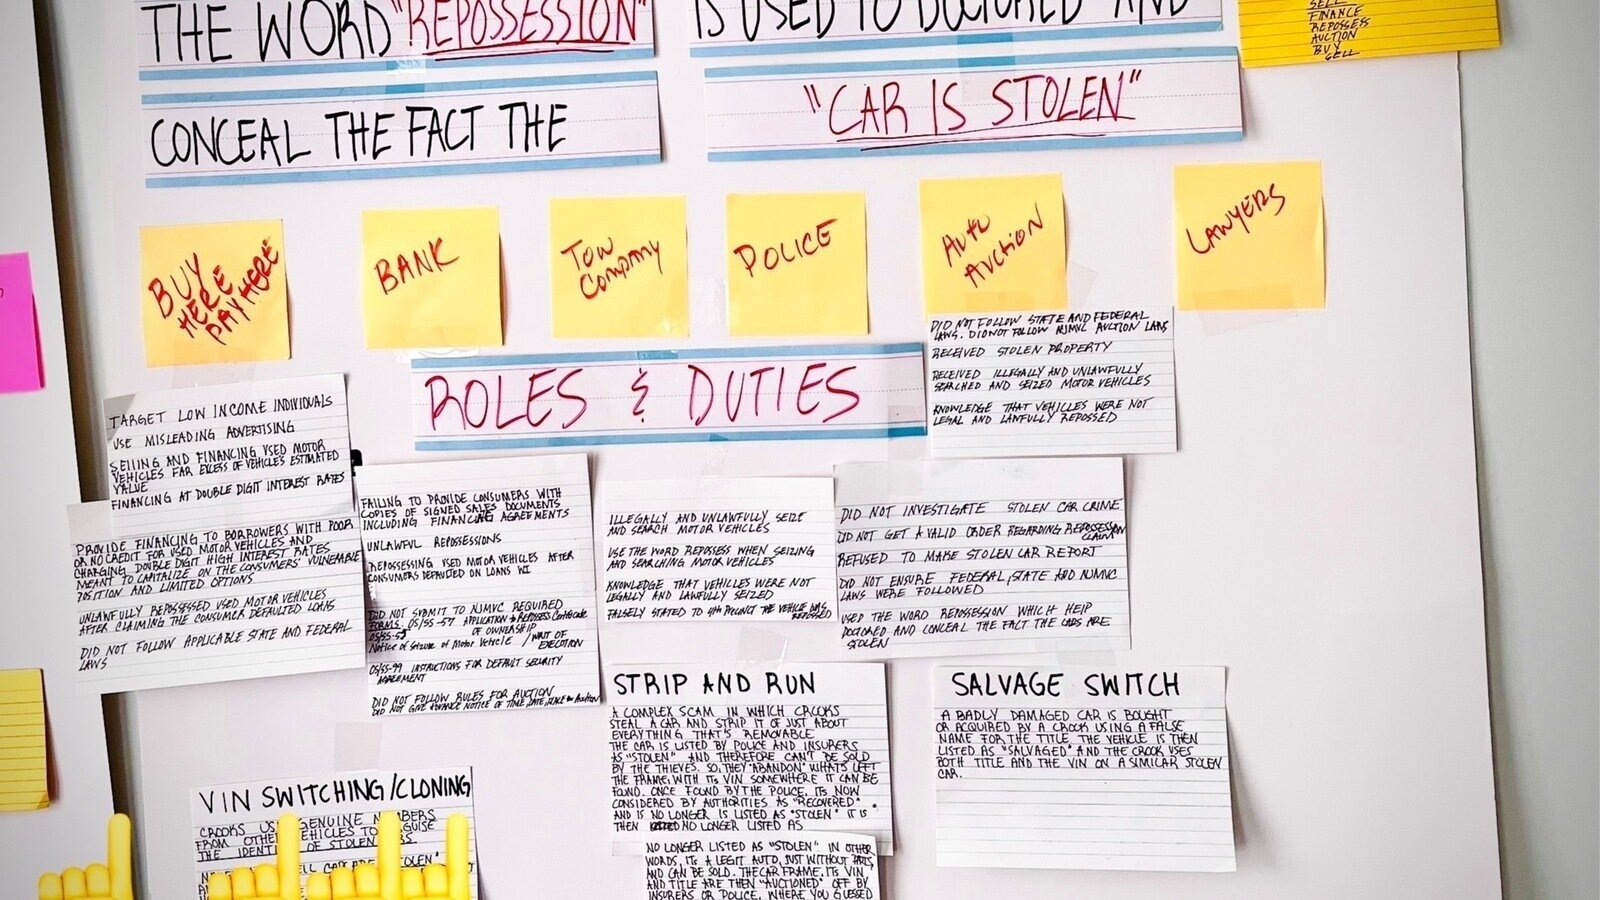 THE WORD "REPOSSESSION" IS USED TO DOCTORED AND
CONCEAL THE FACT THE "CAR IS STOLEN"
SELL
FINANCE
REPOSSESS
AUCTION
BUY
SELL
BUY
HERE
PAY HERE
BANK
TOW
COMPANY
POLICE
AUTO
AUCTION
LAWYERS
ROLES & DUTIES
DID NOT FOLLOW STATE AND FEDERAL
LAWS. DID NOT FOLLOW NJMVC AUCTION LAWS
RECEIVED STOLEN PROPERTY
RECEIVED ILLEGALLY AND UNLAWFULLY
SEARCHED AND SEIZED MOTOR VEHICLES
KNOWLEDGE THAT VEHICLES WERE NOT
LEGAL AND LAWFULLY REPOSSED
TARGET LOW INCOME INDIVIDUALS
USE MISLEADING ADVERTISING
SELLING AND FINANCING USED MOTOR
VEHICLES FAR EXCESS OF VEHICLES ESTIMATED
VALUE
FINANCING AT DOUBLE DIGIT INTEREST RATES
PROVIDE FINANCING TO BORROWERS WITH POOR
OR NO CREDIT FOR USED MOTOR VEHICLES AND
CHARGING DOUBLE DIGIT HIGH INTEREST RATES
MEANT TO CAPITALIZE ON THE CONSUMERS' VULNERABLE
POSITION AND LIMITED OPTIONS
UNLAWFULLY REPOSSESSED USED MOTOR VEHICLES
AFTER CLAIMING THE CONSUMER DEFAULTED LOANS
DID NOT FOLLOW APPLICABLE STATE AND FEDERAL
LAWS
FAILING TO PROVIDE CONSUMERS WITH
COPIES OF SIGNED SALES DOCUMENTS
INCLUDING FINANCING AGREEMENTS
UNLAWFUL REPOSSESSIONS
REPOSSESSING USED MOTOR VEHICLES AFTER
CONSUMERS DEFAULTED ON LOANS WI
DID NOT SUBMIT TO NJMVC REQUIRED
FORMS. OS/SS-57 APPLICATION REPOSSESS CERTIFICATE
OF OWNERSHIP
Notice of Seizure of Motor Vehicle / WRIT OF
EXECUTION
OS/SS-99 INSTRUCTIONS FOR DEFAULT SECURITY
AGREEMENT
DID NOT FOLLOW RULES FOR AUCTION
DID NOT GIVE ADVANCE NOTICE OF TIME, DATE, PLACE Auction
ILLEGALLY AND UNLAWFULLY SEIZE
AND SEARCH MOTOR VEHICLES
USE THE WORD REPOSSESS WHEN SEIZING
AND SEARCHING MOTOR VEHICLES
KNOWLEDGE THAT VEHICLES WERE NOT
LEGALLY AND LAWFULLY SEIZED
FALSELY STATED TO 4th PRECINCT THE VEHICLE WAS
REPOSSED
DID NOT INVESTIGATE STOLEN CAR CRIME
DID NOT GET A VALID ORDER REGARDING REPOSSESSION
CLAIM
REFUSED TO MAKE STOLEN CAR REPORT
DID NOT ENSURE FEDERAL, STATE AND NJMVC
LAWS WERE FOLLOWED
USED THE WORD REPOSESSION WHICH HELP
DOCTORED AND CONCEAL THE FACT THE CARS ARE
STOLEN
STRIP AND RUN
A COMPLEX SCAM IN WHICH CROOKS
STEAL A CAR AND STRIP IT OF JUST ABOUT
EVERYTHING THAT'S REMOVABLE
THE CAR IS LISTED BY POLICE AND INSURERS
AS "STOLEN" AND THEREFORE CAN'T BE SOLD
BY THE THIEVES. SO, THEY "ABANDON" WHATS LEFT
THE FRAME, WITH ITS VIN SOMEWHERE IT CAN BE
FOUND. ONCE FOUND BY THE POLICE, ITS NOW
CONSIDERED BY AUTHORITIES AS "RECOVERED".
AND IS NO LONGER IS LISTED AS "STOLEN" IT IS
THEN NO LONGER LISTED AS
NO LONGER LISTED AS "STOLEN" IN OTHER
WORDS, ITS A LEGIT AUTO, JUST WITHOUT PARTS,
AND CAN BE SOLD. THE CAR FRAME, ITS VIN
AND TITLE ARE THEN "AUCTIONED" OFF BY
INSURERS OR POLICE, WHERE YOU GUESSED
SALVAGE SWITCH
A BADLY DAMAGED CAR IS BOUGHT
OR ACQUIRED BY A CROOK USING A FALSE
NAME FOR THE TITLE. THE VEHICLE IS THEN
LISTED AS "SALVAGED" AND THE CROOK USES
BOTH TITLE AND THE VIN ON A SIMILAR STOLEN
CAR.
VIN SWITCHING/CLONING
CROOKS USE GENUINE NUMBERS
FROM OTHER VEHICLES TO
THE OF STOLEN